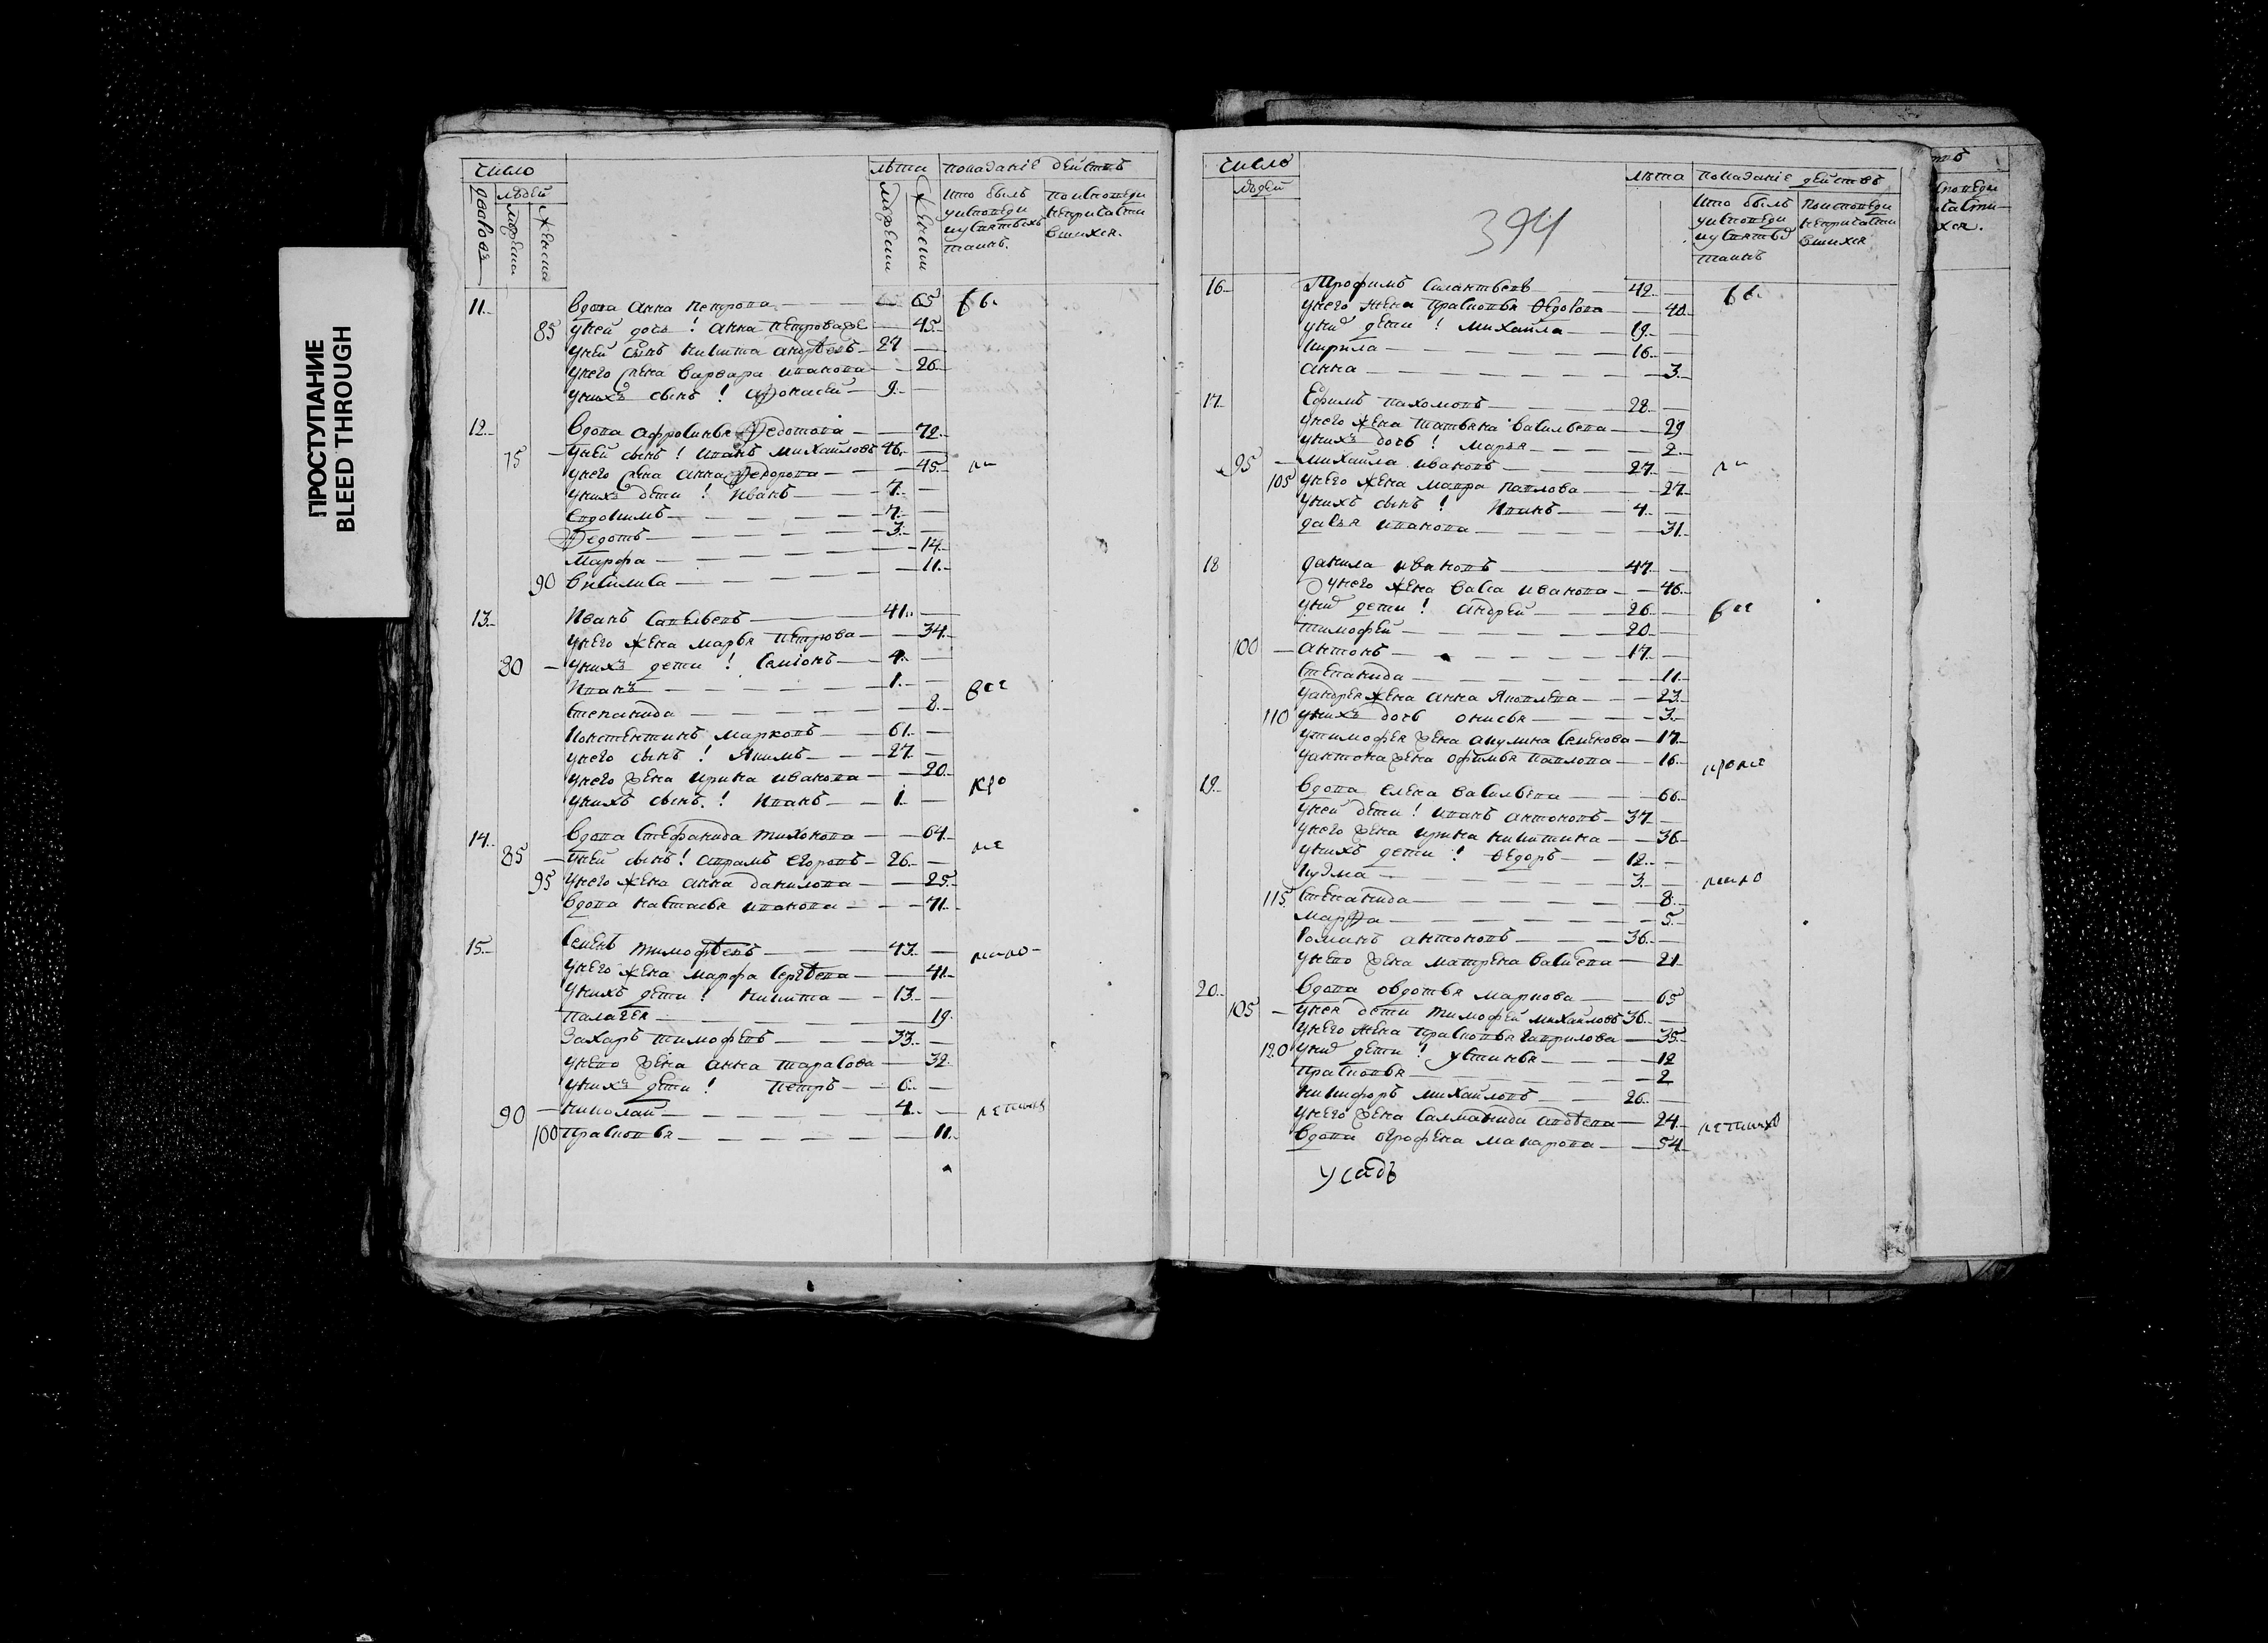 ПРОСТУПАНИЕ
BLEED THROUGH
число
людей
лѣта показанiе действъ
дворовъ мужеска женска
мужески женски
кто былъ у исповеди и у святыхъ таинъ.
по исповеди не причастившихся.
11. вдова анна петрова 65 вс
85 у ней дочь! анна петрова же 45
у ней сынъ никита андрѣевъ 27
у него жена варвара иванова 26
у нихъ сынъ! афонасей 9
12. вдова афросинья федотова 72
75 у ней сынъ! иванъ михайловъ 46
у него жена анна федорова 45
у нихъ дети! иванъ 7
евдокимъ 7
федотъ 3
марфа 14
90 василиса 11
13. иванъ савельевъ 41
у него жена марья петрова 34
80 у нихъ дети! семiонъ 4
иванъ 1
степанида 8 все
константинъ марковъ 61
у него сынъ! якимъ 27
у него жена ирина иванова 20
у нихъ сынъ! иванъ 1 кро
14. вдова стефанида тихонова 64 ме
85 у ней сынъ! аврамъ егоровъ 26
95 у него жена анна данилова 25
вдова настасья иванова 71
15. семенъ тимофѣевъ 43
у него жена марфа сергѣева 41
у нихъ дети! никита 13
палагея 19
захаръ тимофѣевъ 33
у нево жена анна тарасова 32
у нихъ дети! петръ 6
90 николай 4
100 прасковья 11
число
людей
394
лѣта показанiе действъ
кто былъ у исповеди и у святыхъ таинъ
по исповеди не причастившихся
16. трофимъ силантьевъ 42 вс
у него жена прасковья ѳедорова 40
у нихъ дети! михайла 19
кирила 16
анна 3
17. ефимъ пахомовъ 28
у него жена татьяна васильева 29
у нихъ дочь! марья 2
95 михайла ивановъ 27
105 у него жена мавра павлова 27
у нихъ сынъ! иванъ 4
дарья иванова 31
18 данила ивановъ 47
у него жена васса иванова 46
у нихъ дети! андрей 26 все
тимофей 20
100 антонъ 17
степанида 11
у андрея жена анна яковлева 23
110 у нихъ дочь онисья 3
у тимофея жена акулина семенова 17
у антона жена офимья павлова 16 кроме
19. вдова елена васильева 66
у ней дети! иванъ антоновъ 37
у него жена ирина никитина 36
у нихъ дети! ѳедоръ 12
кузма 3
115 степанида 8
марфа 5
романъ антоновъ 36
у нево жена матрена васильева 21
20. вдова овдотья маркова 65
105 у нея дети тимофей михайловъ 36
у него жена прасковья гаврилова 35
120 у нихъ дети! устинья 12
прасковья 2
никифоръ михайловъ 26
у него жена саламанида авдѣева 24
вдова огрофена макарова 54
усадь